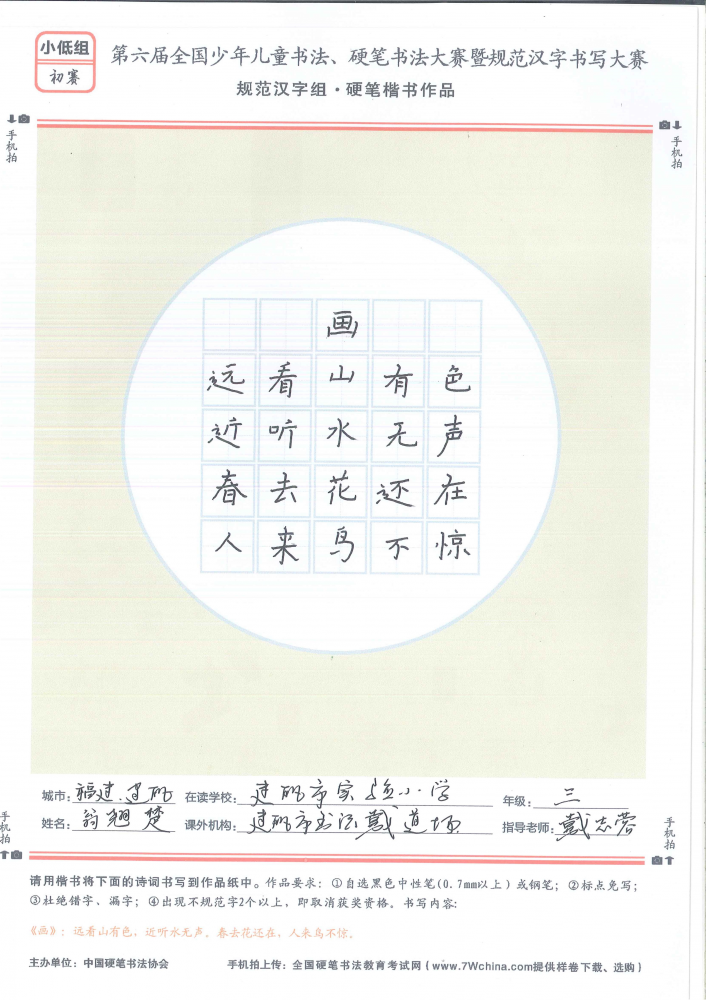 小低组
初赛
第六届全国少年儿童书法、硬笔书法大赛暨规范汉字书写大赛
规范汉字组·硬笔楷书作品
手机拍
手机拍
画
远看山有色
近听水无声
春去花还在
人来鸟不惊
城市：福建.建瓯 在读学校：建瓯市实验小学 年级：三
姓名：翁翘楚 课外机构：建瓯市书法戴道场 指导老师：戴志蓉
手机拍
手机拍
请用楷书将下面的诗词书写到作品纸中。作品要求：①自选黑色中性笔(0.7mm以上）或钢笔；②标点免写；
③杜绝错字、漏字；④出现不规范字2个以上，即取消获奖资格。书写内容：
《画》：远看山有色，近听水无声。春去花还在，人来鸟不惊。
主办单位：中国硬笔书法协会 手机拍上传：全国硬笔书法教育考试网（www.7Wchina.com提供样卷下载、选购）